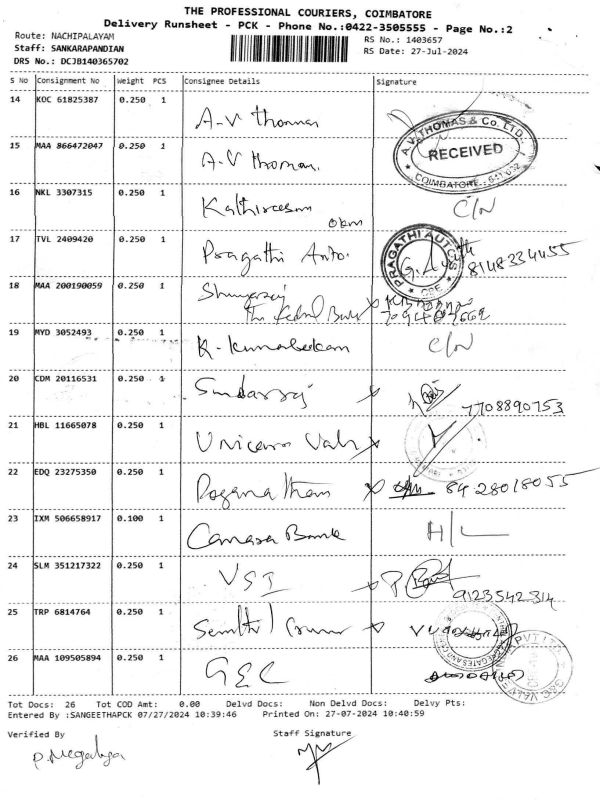 THE PROFESSIONAL COURIERS, COIMBATORE
Delivery Runsheet - PCK - Phone No.:0422-3505555 - Page No.:2
Route: NACHIPALAYAM
RS No.: 1403657
Staff: SANKARAPANDIAN
RS Date: 27-Jul-2024
DRS No.: DCJB140365702
S No Consignment No Weight PCS Consignee Details Signature
14 KOC 61825387 0.250 1 A.V Thomas
A.V. THOMAS & Co. LTD. RECEIVED COIMBATORE - 641 032
15 MAA 866472047 0.250 1 A.V Thomas.
16 NKL 3307315 0.250 1 C/N
17 TVL 2409420 0.250 1 Pragathi Auto. PRAGATHI AUTOS CBE 8148334455
18 MAA 200190059 0.250 1
The Federal Bank
19 MYD 3052493 0.250 1 C/N
20 CDM 20116531 0.250 1 Sundarraj 7708890753
21 HBL 11665078 0.250 1 Unicorn
22 EDQ 23275350 0.250 1 8428018055
23 IXM 506658917 0.100 1 Canara Bank H/L
24 SLM 351217322 0.250 1 VSI 9123542314
25 TRP 6814764 0.250 1 Senthil
26 MAA 109505894 0.250 1 GEC
Tot Docs: 26 Tot COD Amt: 0.00 Delvd Docs: Non Delvd Docs: Delvy Pts:
Entered By :SANGEETHAPCK 07/27/2024 10:39:46 Printed On: 27-07-2024 10:40:59
Verified By Staff Signature
P. Megalya